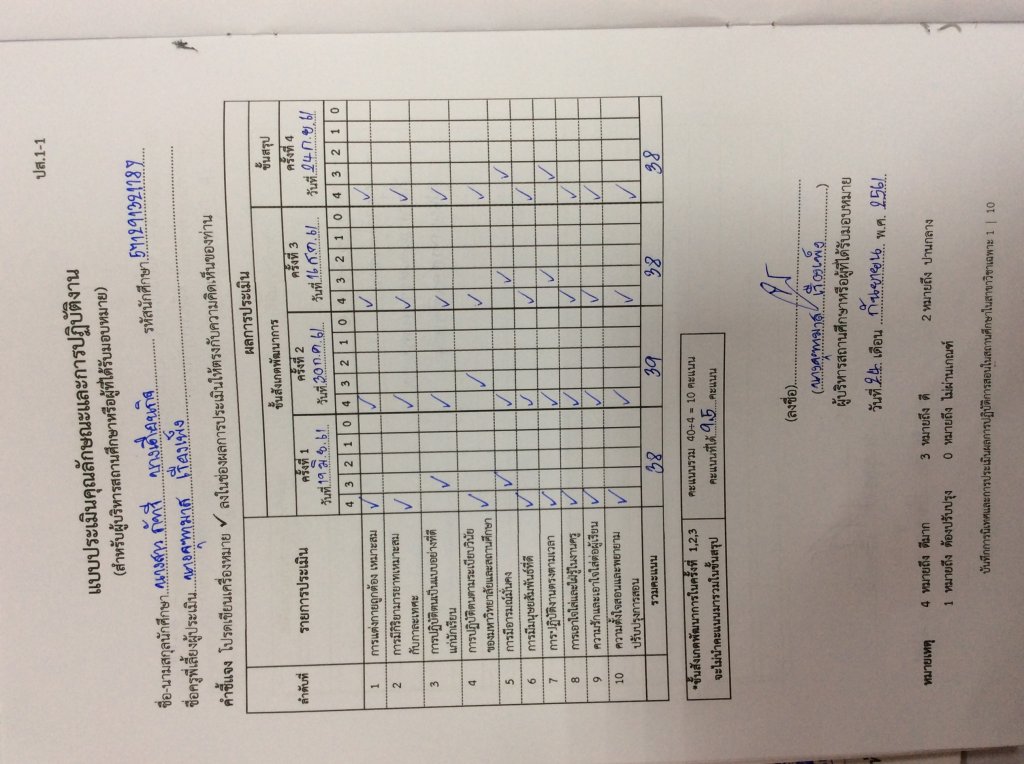 ปส.1-1
แบบประเมินคุณลักษณะและการปฏิบัติงาน
(สำหรับผู้บริหารสถานศึกษาหรือผู้ที่ได้รับมอบหมาย)
ชื่อ-นามสกุลนักศึกษา นางสาว รหัสนักศึกษา
ชื่อครูพี่เลี้ยงผู้ประเมิน
คำชี้แจง โปรดเขียนเครื่องหมาย ✓ ลงในช่องผลการประเมินให้ตรงกับความคิดเห็นของท่าน
ลำดับที่ รายการประเมิน ผลการประเมิน
ขั้นสังเกตพัฒนาการ ขั้นสรุป
ครั้งที่ 1 ครั้งที่ 2 ครั้งที่ 3 ครั้งที่ 4
วันที่ 19 มิ.ย. 61 วันที่ 30 ก.ค. 61 วันที่ 16 ส.ค. 61 วันที่ 24 ก.ย. 61
4 3 2 1 0 4 3 2 1 0 4 3 2 1 0 4 3 2 1 0
1 การแต่งกายถูกต้อง เหมาะสม ✓ ✓ ✓ ✓
2 การมีกิริยามารยาทเหมาะสม ✓ ✓ ✓ ✓
กับกาละเทศะ
3 การปฏิบัติตนเป็นแบบอย่างที่ดี ✓ ✓ ✓ ✓
แก่นักเรียน
4 การปฏิบัติตนตามระเบียบวินัย ✓ ✓ ✓ ✓
ของมหาวิทยาลัยและสถานศึกษา
5 การมีอารมณ์มั่นคง ✓ ✓ ✓ ✓
6 การมีมนุษยสัมพันธ์ที่ดี ✓ ✓ ✓ ✓
7 การปฏิบัติงานตรงตามเวลา ✓ ✓ ✓ ✓
8 การเอาใจใส่และใฝ่รู้ในงานครู ✓ ✓ ✓ ✓
9 ความรักและเอาใจใส่ต่อผู้เรียน ✓ ✓ ✓ ✓
10 ความตั้งใจสอนและพยายาม ✓ ✓ ✓ ✓
ปรับปรุงการสอน
รวมคะแนน 38 39 38 38
*ขั้นสังเกตพัฒนาการในครั้งที่ 1,2,3 คะแนนรวม 40÷4 = 10 คะแนน
จะไม่นำคะแนนมารวมในขั้นสรุป คะแนนที่ได้ 9.5 คะแนน
(ลงชื่อ)
ผู้บริหารสถานศึกษาหรือผู้ที่ได้รับมอบหมาย
วันที่ 24 เดือน กันยายน พ.ศ. 2561
หมายเหตุ 4 หมายถึง ดีมาก 3 หมายถึง ดี 2 หมายถึง ปานกลาง
1 หมายถึง ต้องปรับปรุง 0 หมายถึง ไม่ผ่านเกณฑ์
บันทึกการนิเทศและการประเมินผลการปฏิบัติการสอนในสถานศึกษาในสาขาวิชาเฉพาะ 1 | 10